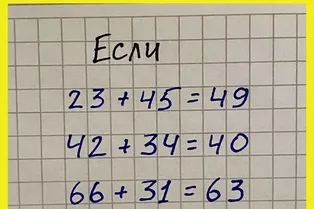 Если
23 + 45 = 49
42 + 34 = 40
66 + 31 = 63